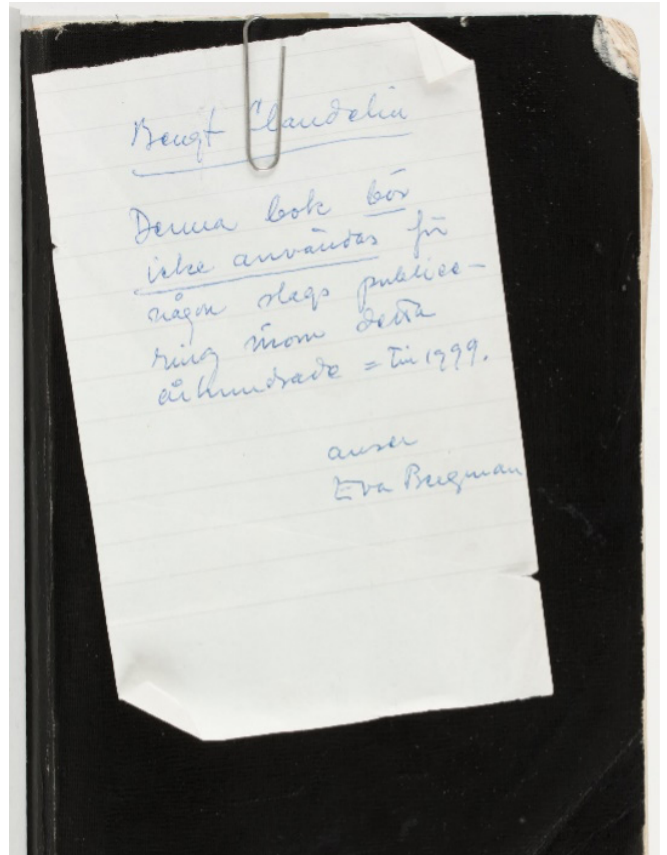 Bengt Claudelin
Denna bok bör
icke användas för
någon slags publice-
ring inom detta
århundrade = Till 1999.
anser
Eva Bergman